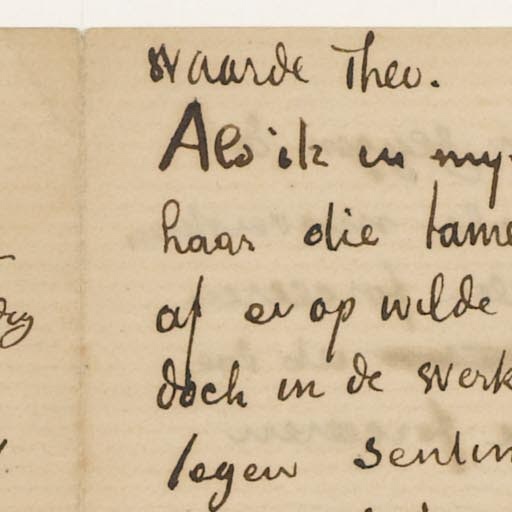 Waarde Theo.
Als ik in my
haar die tame
af er op wilde
doch in de werk
tegen sentim